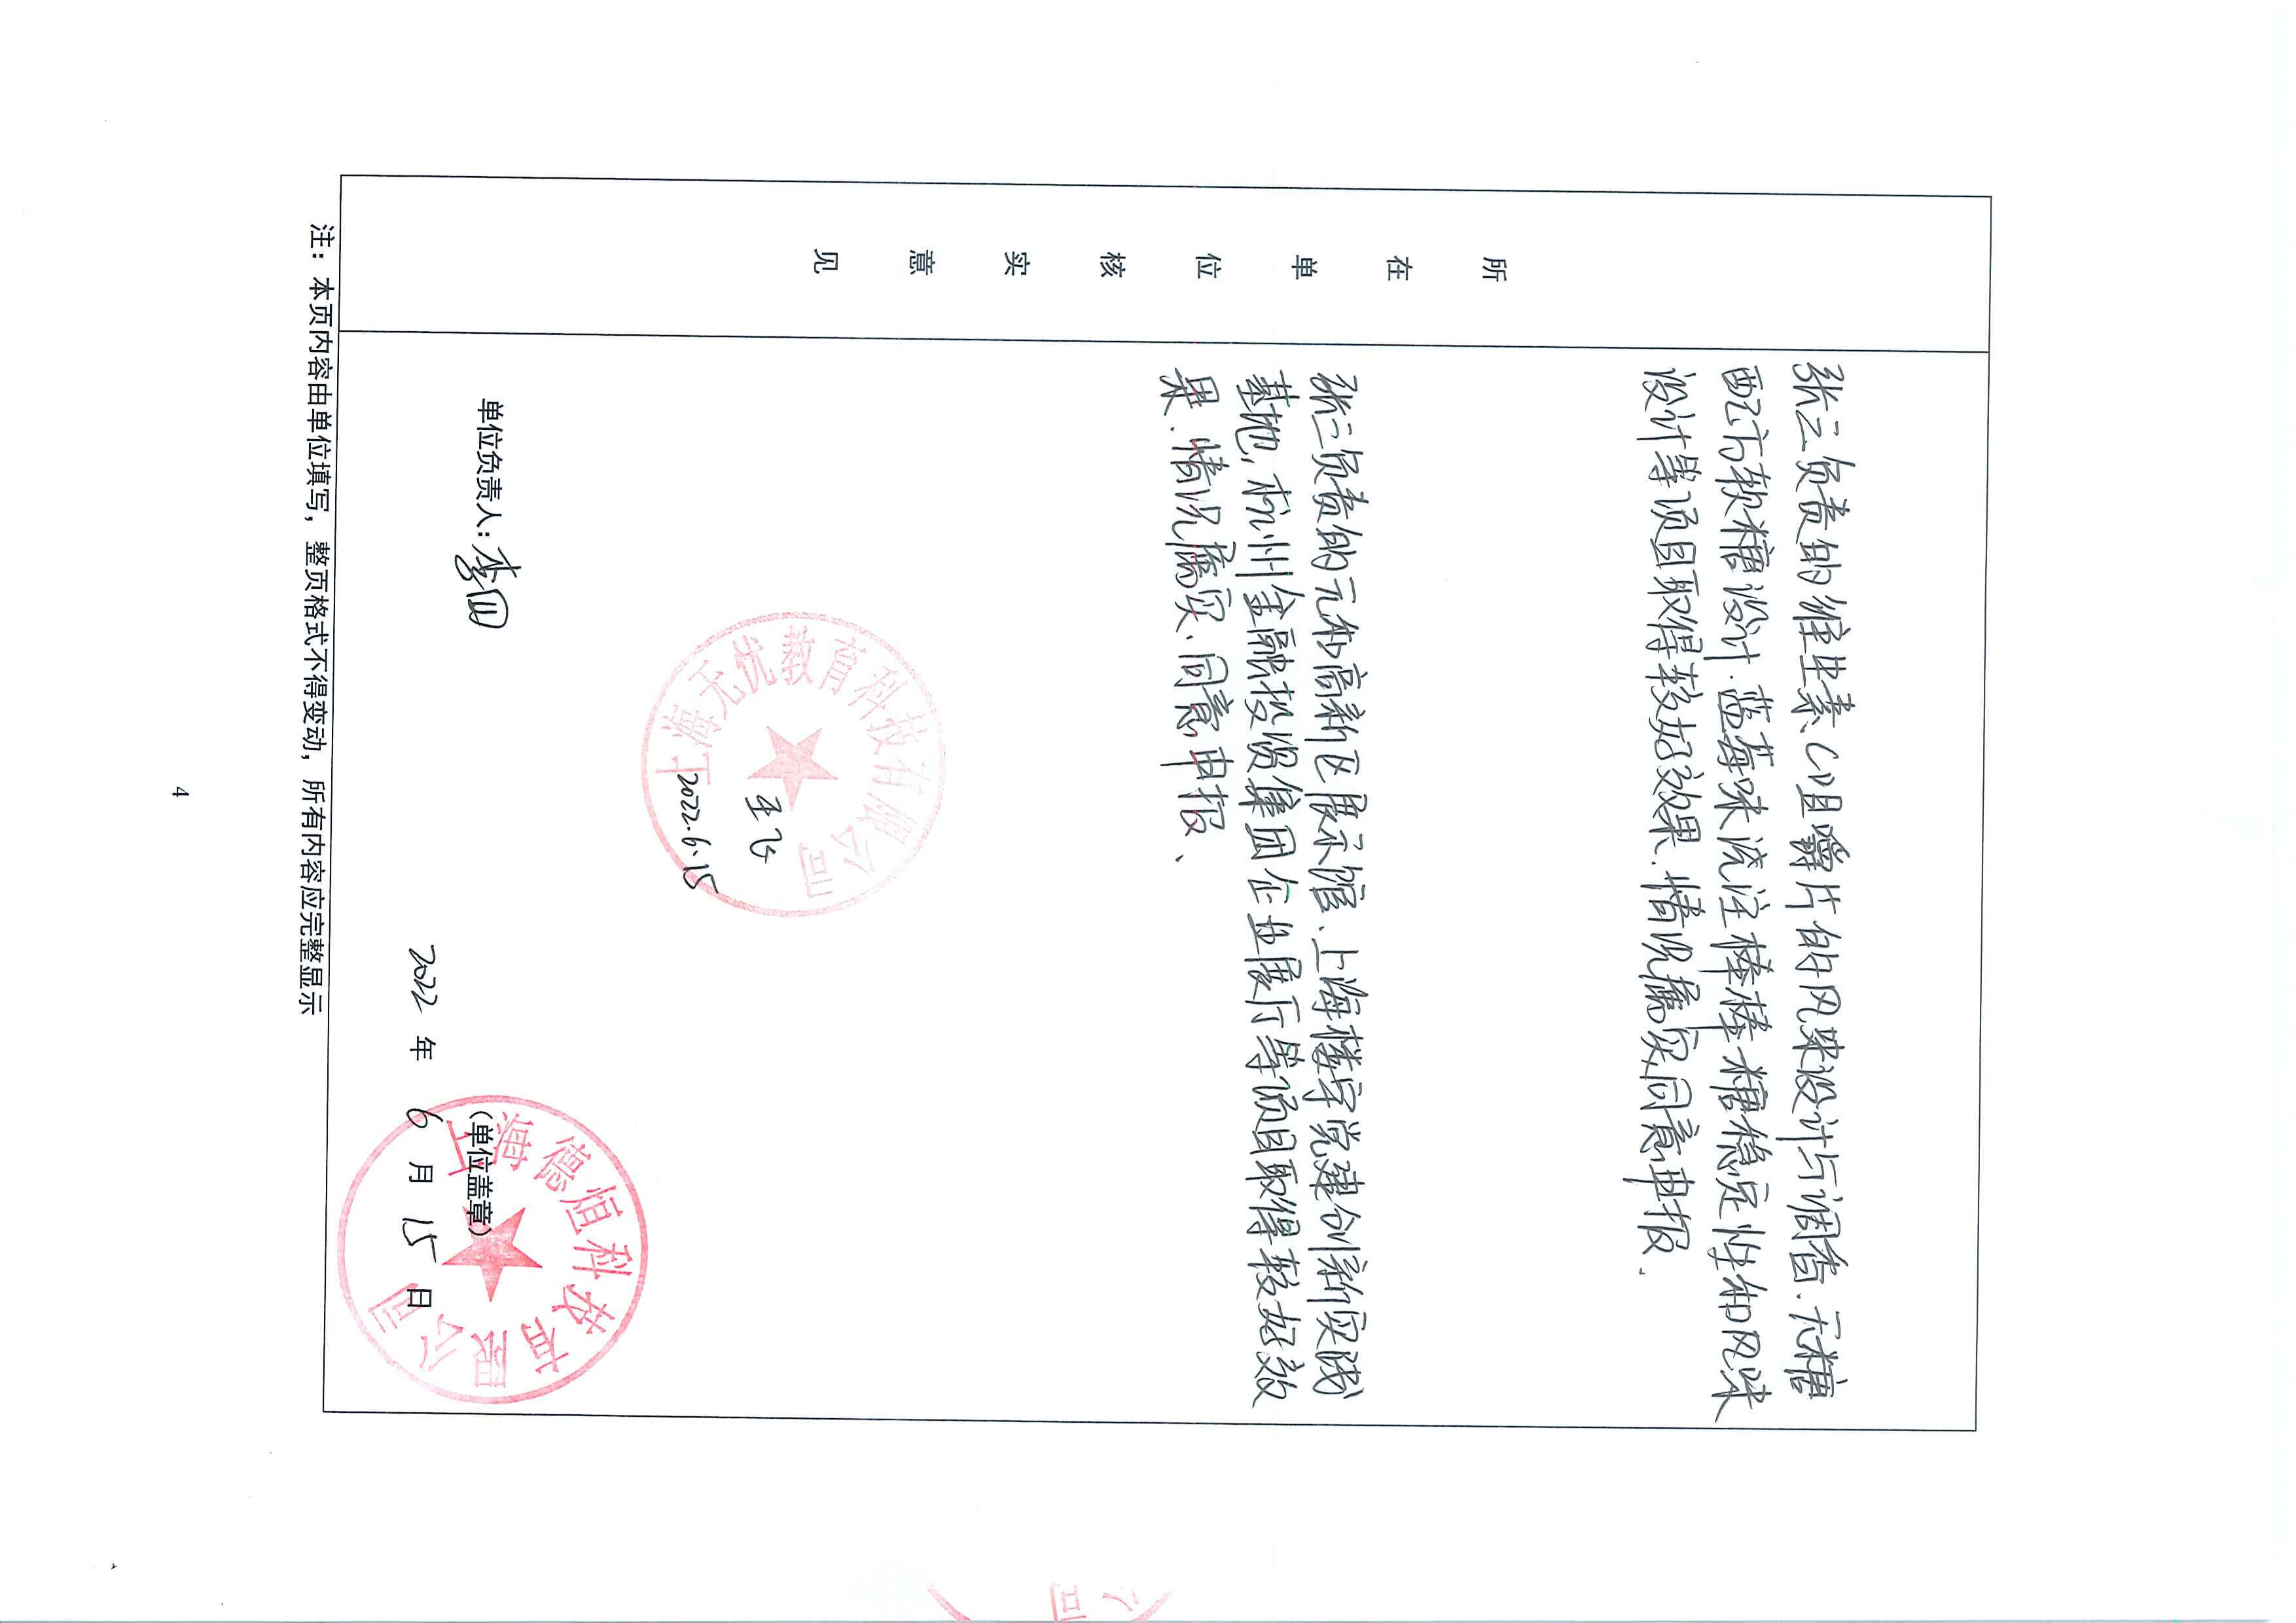 所在单位核实意见
张三负责的维生素C咀嚼片的风味设计与调香、无糖
配方软糖设计、蓝莓味流注棒棒糖稳定性和风味
设计等项目取得较好效果.情况属实,同意申报.
张三负责的元和高新区展示馆、上海楼宇党建创新实践
基地,杭州金融投资集团企业展厅等项目取得较好效
果.情况属实.同意申报、
上海无优教育科技有限公司
王飞
2022.6.15
单位负责人:李四
(单位盖章)
上海德恒科技有限公司
2022 年 6 月 15 日
注:本页内容由单位填写,整页格式不得变动,所有内容应完整显示
4
公司